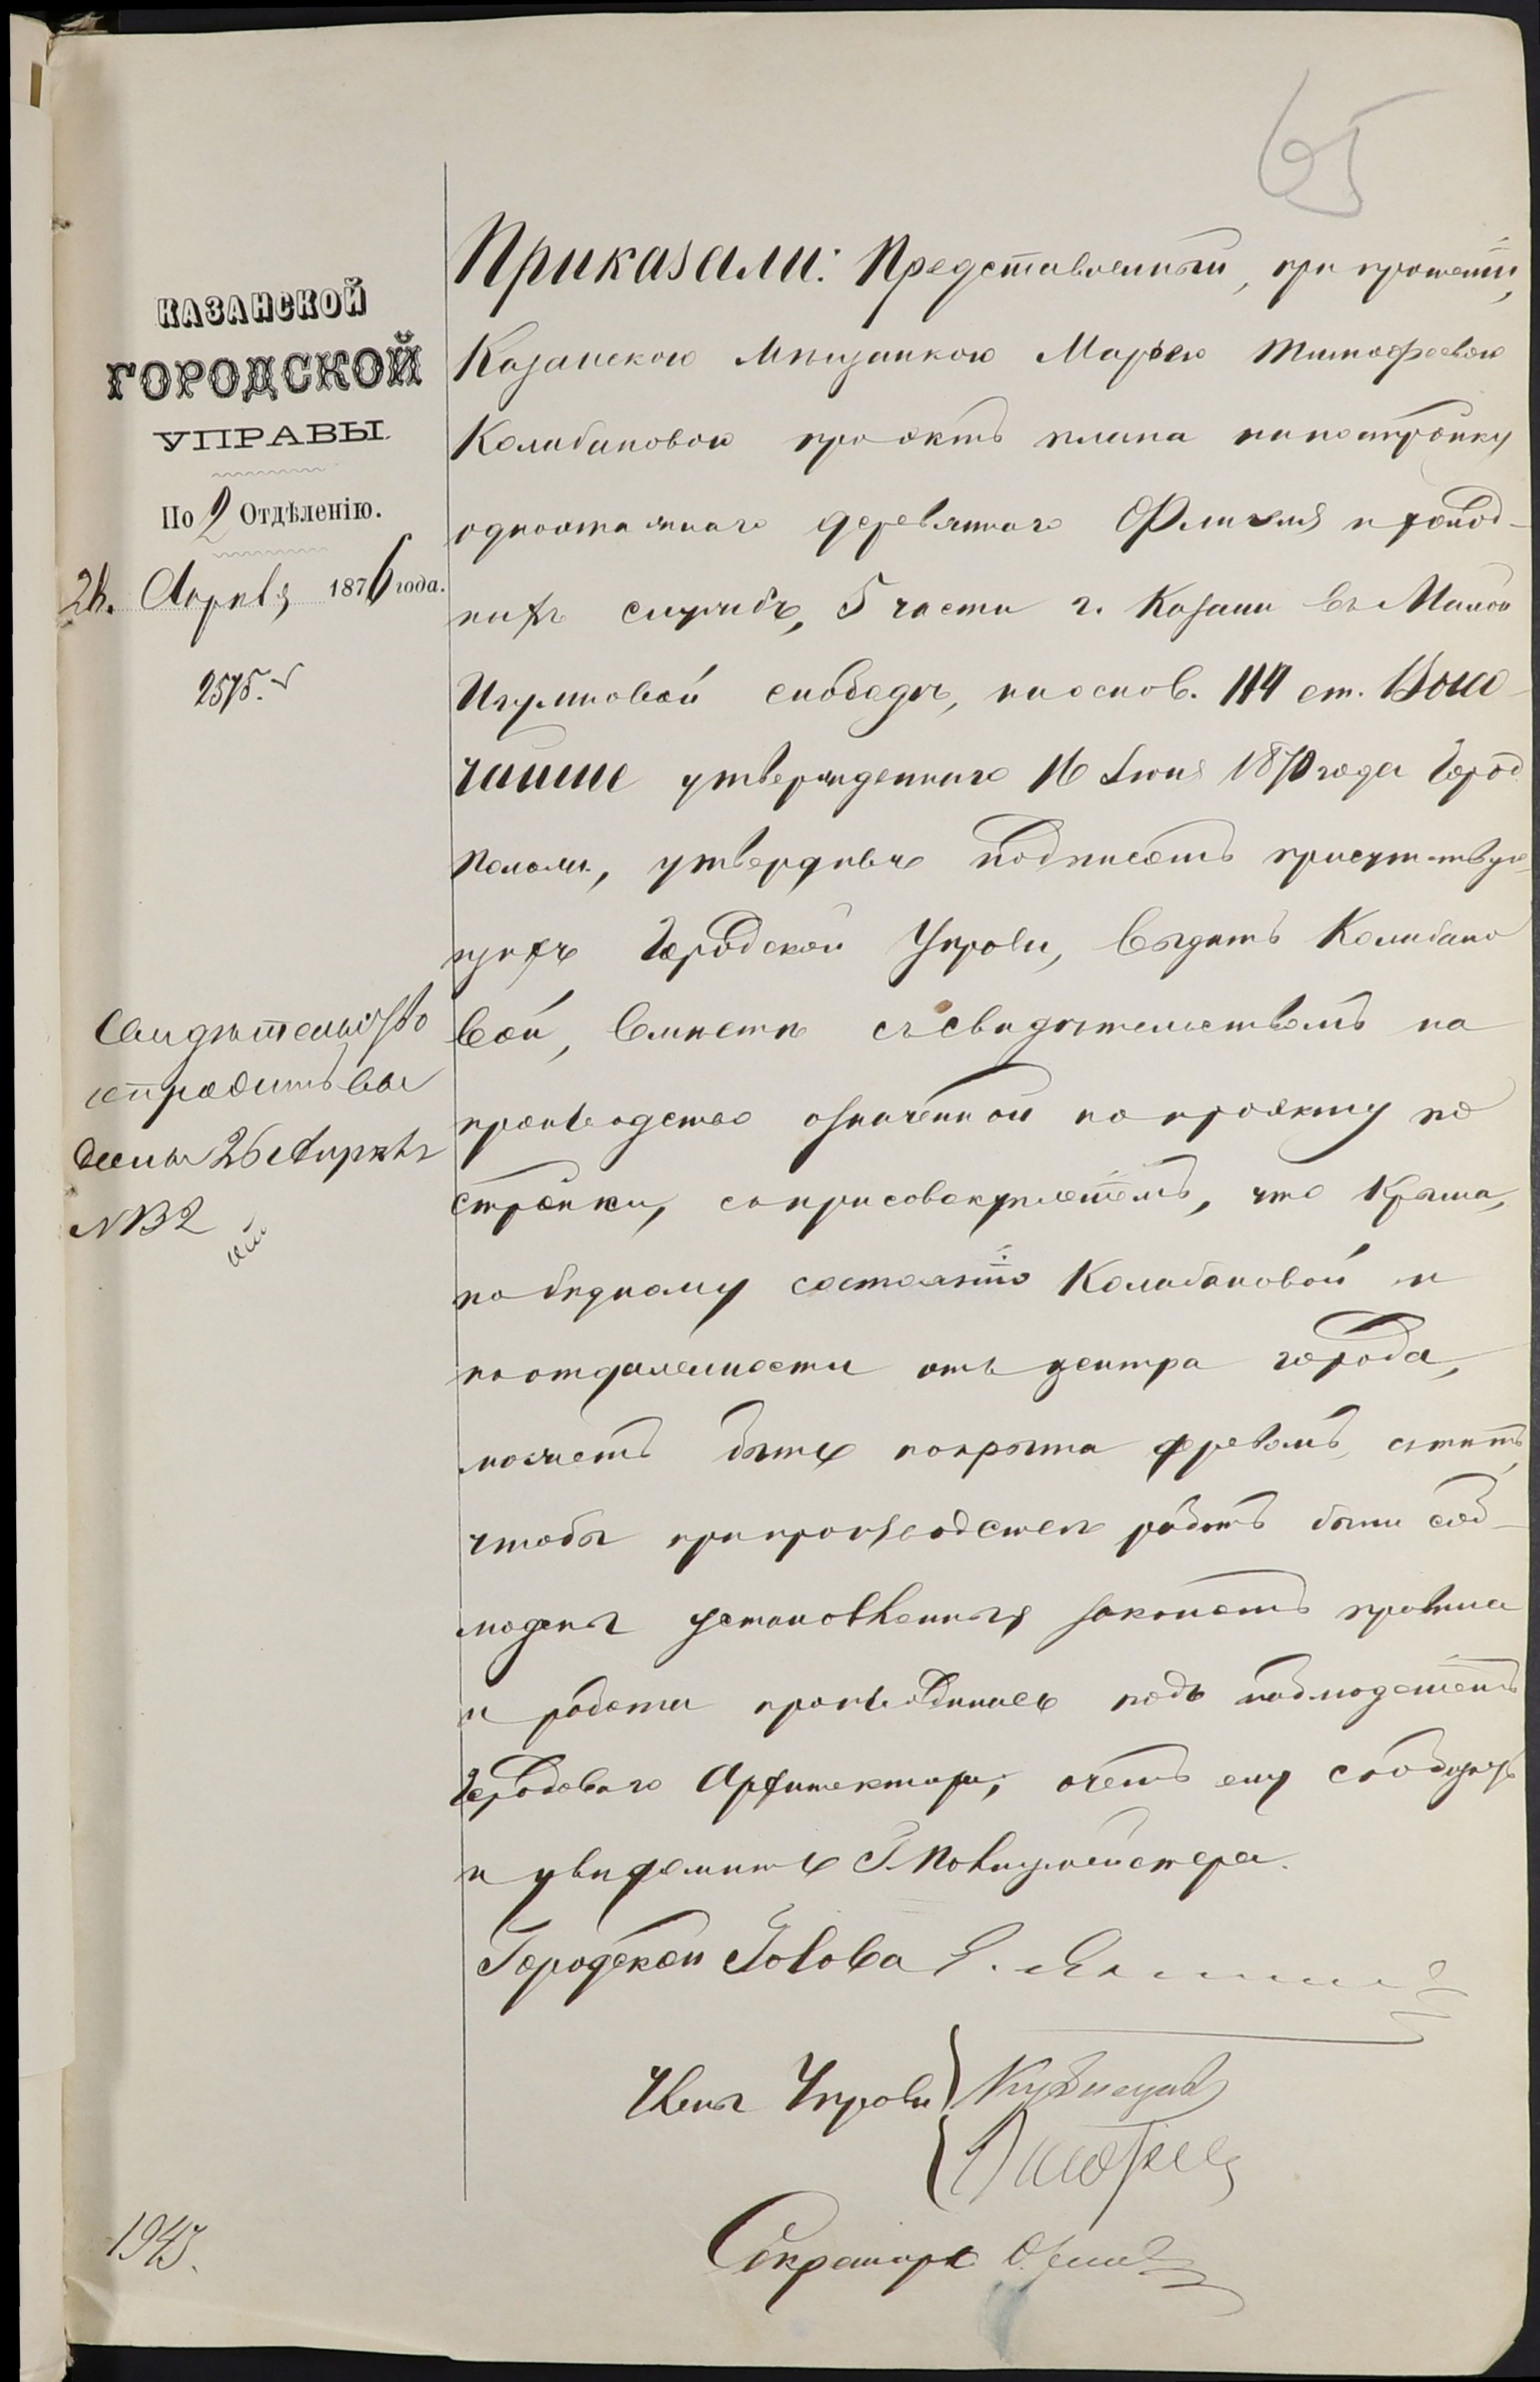 65
КАЗАНСКОЙ
ГОРОДСКОЙ
УПРАВЫ.
По 2 Отдѣленію.
24. Апрѣля 1876 года.
2575.
Свидѣтельство
отправить въ
26 Апрѣля
№ 32
1943.
Приказали: Представленный, при прошеніи,
Казанскою мѣщанкою Марьею Тимофеевою
Колабановою проэктъ плана на постройку
одноэтажнаго деревяннаго Флигеля и холод-
ныхъ службъ, 5 части г. Казани въ Малой
Игумновой слободѣ, на основ. 114 ст. Высо-
чайше утвержденнаго 16 Іюня 1870 года Город.
Полож., утвердивъ подписомъ присутствую-
щихъ Городской Управы, выдать Колабано
вой, вмѣстѣ съ свидѣтельствомъ на
производство означенной по проэкту по
стройки, съ присовокупленіемъ, что крыша,
по бѣдному состоянію Колабановой и
по отдаленности отъ центра города,
можетъ быть покрыта деревомъ, съ тѣмъ,
чтобы при производствѣ работъ были соб-
людены установленныя закономъ правила
и работы производились подъ наблюденіемъ
Городоваго Архитектора, о чемъ ему сообщить
и увѣдомить Г. Полицмейстера.
Городской Голова Э. Янишевскій
Члены Управы Кузнецовъ
Секретарь